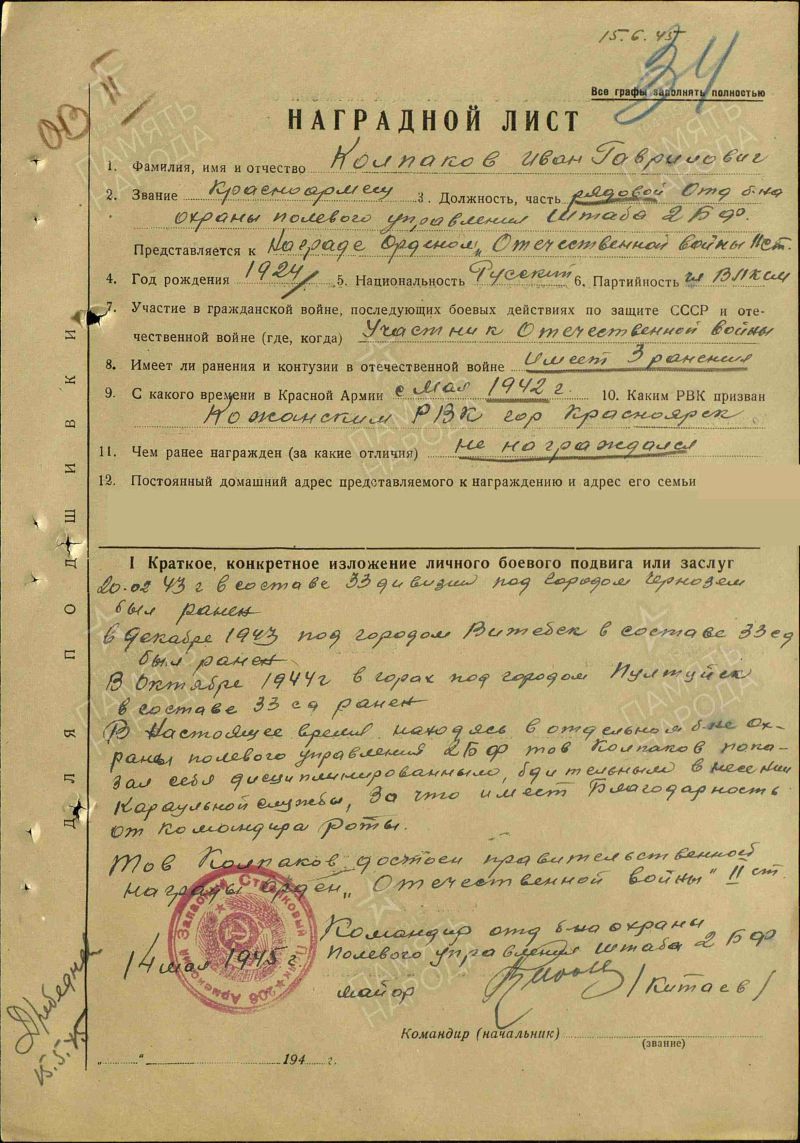 15.6.45
34
Все графы заполнять полностью
ОВ II
НАГРАДНОЙ ЛИСТ
1. Фамилия, имя и отчество Колпаков Иван Гаврилович
2. Звание Красноармеец 3. Должность, часть рядовой Отд б-на
охраны полевого управления штаба 2 БФ.
Представляется к Награде Орденом „Отечественной войны II ст.
4. Год рождения 1924 5. Национальность Русский 6. Партийность чл ВЛКСМ
7. Участие в гражданской войне, последующих боевых действиях по защите СССР и оте-
чественной войне (где, когда) Участник Отечественной войны
8. Имеет ли ранения и контузии в отечественной войне Имеет 3 ранения
9. С какого времени в Красной Армии с мая 1942 г. 10. Каким РВК призван
РВК гор Красноярск
11. Чем ранее награжден (за какие отличия) не награждался
12. Постоянный домашний адрес представляемого к награждению и адрес его семьи
I Краткое, конкретное изложение личного боевого подвига или заслуг
20.02 43 г в составе 33 дивизии под городом
был ранен
в декабре 1943 под городом Витебск в составе 33 сд
был ранен
В Октябре 1944 г в горах под городом Пултуйск
в составе 33 сд ранен
В Настоящее время находясь в отдельном б-не ох-
раны полевого управления 2 БФ тов Колпаков пока-
зал себя дисциплинированным, бдительным в несении
Караульной службы, За что имеет Благодарность
от командира роты.
Тов Колпаков достоен правительственной
награды орден „Отечественной войны" II ст.
Командир отд б-на охраны
Полевого управления штаба 2 БФ
14 мая 1945 г
майор /Китаев/
206 Армейский Запасной Стрелковый Полк
Командир (начальник)
(звание)
„ “ 194 г.
15.5.45
ДЛЯ ПОДШИВКИ
ПАМЯТЬ НАРОДА